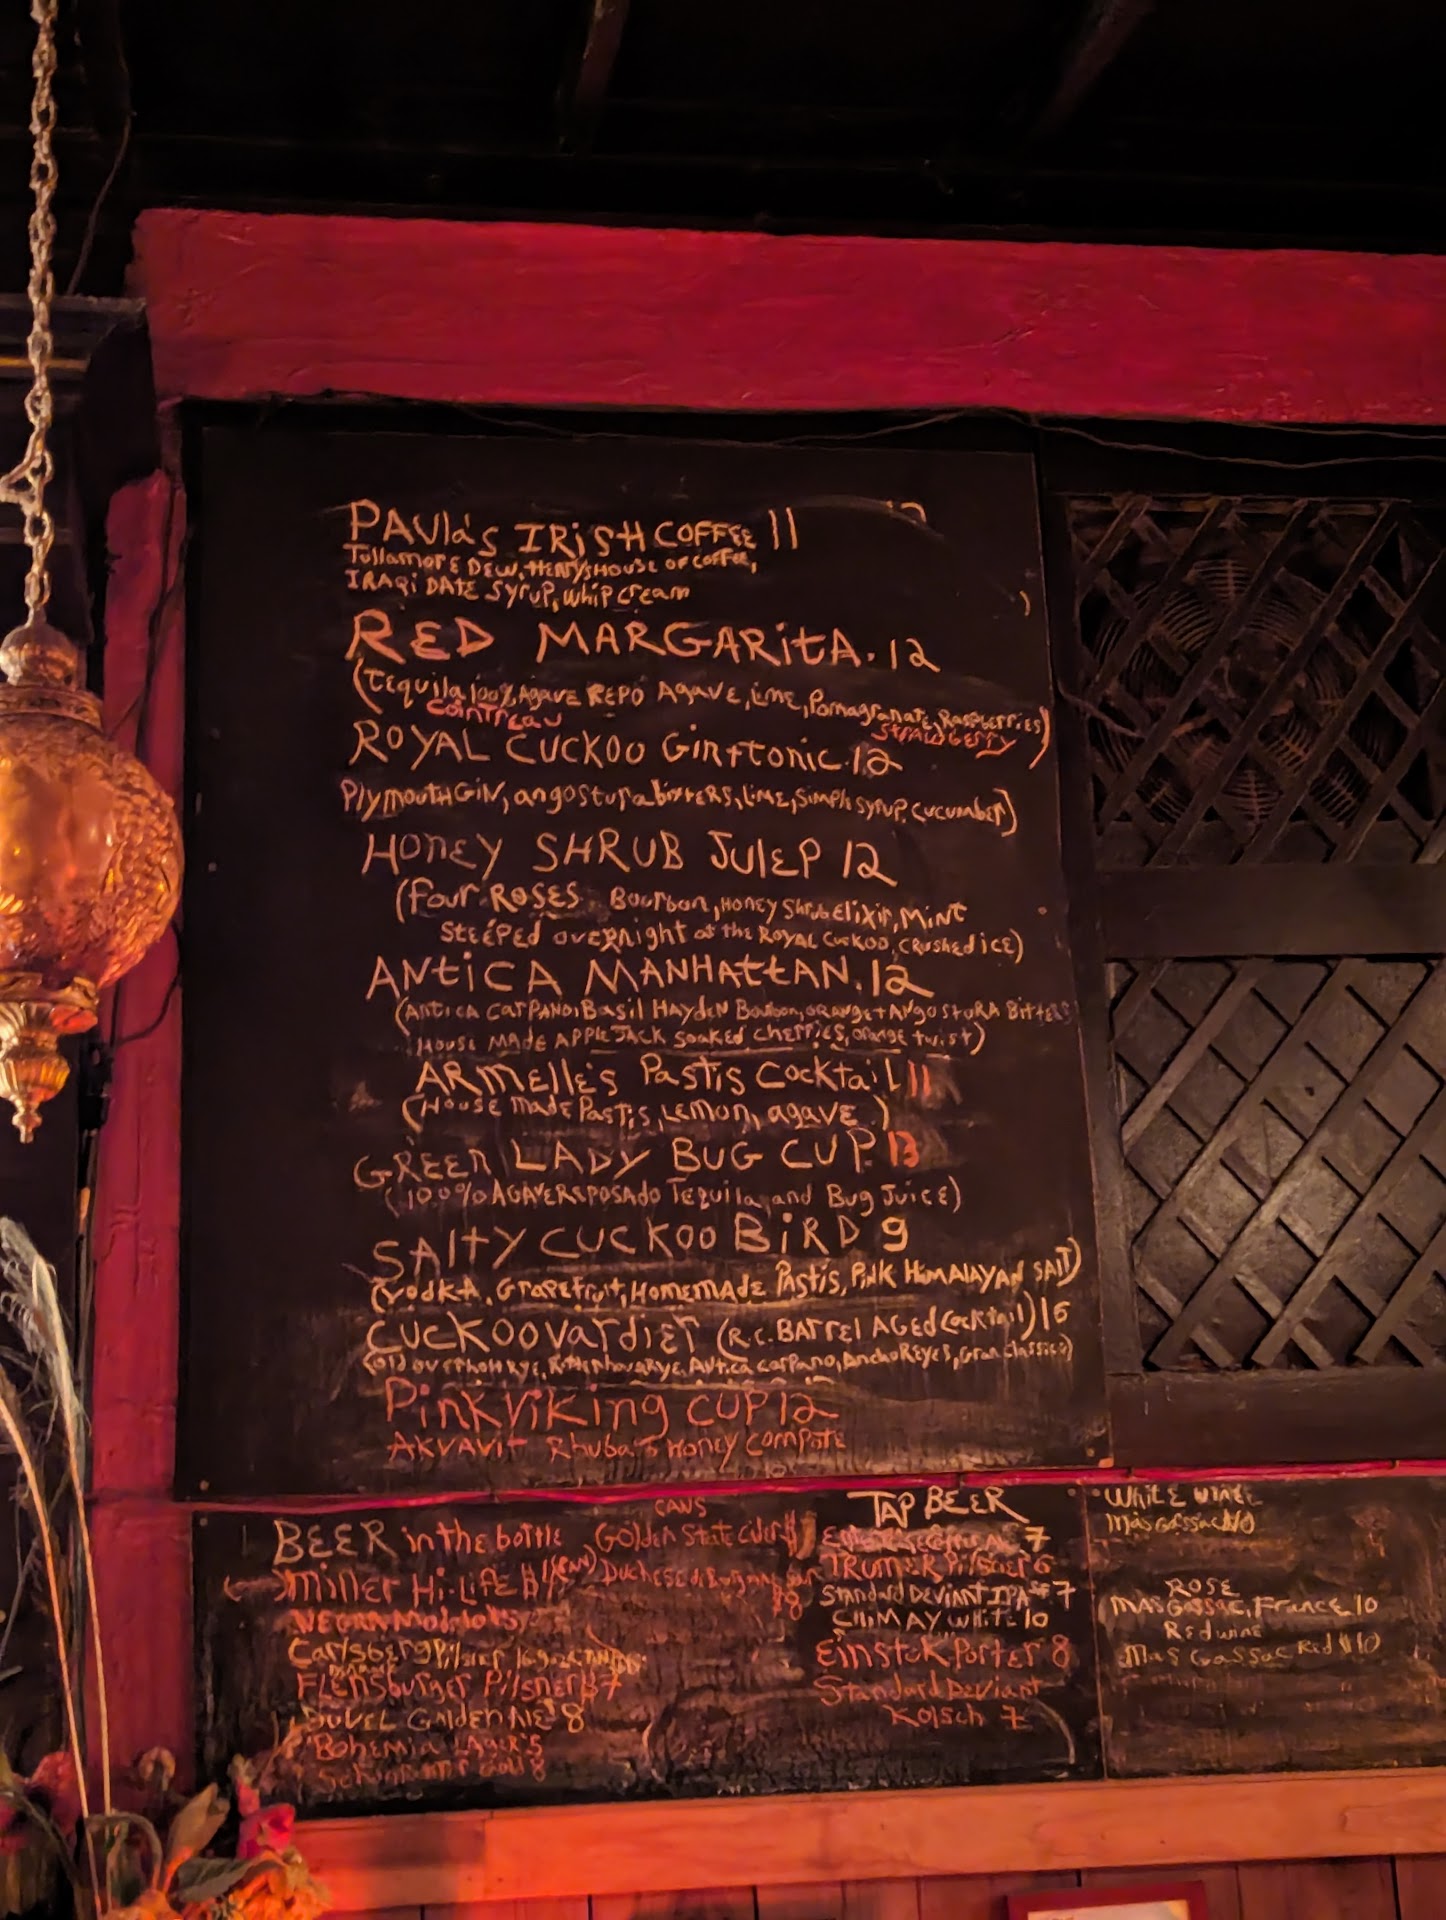 PAUla's IRiSH COFFEE 11
TullamorE DEW, HENry'S HOUSE OF COFFEE,
IRAqi DATE SyruP, WHiP Cream
RED MARGARitA. 12
(TEquila 100% AgavE REPO AgavE, LiME, Pomagranate, RaspbErriEs)
COiNTrEau
STRAWbErry
ROYAL CUCKOO Gin+tonic. 12
PlymOUTH GiN, angostura bittERS, LiME, SimplE syrup, CUCUMbER)
HONEY SHRUB JULEP 12
(Four ROSES Bourbon, HONEY Shrub Elixir, MiNt
STEEPED overnight at the ROYAL CUCKOO, CRUSHED iCE)
ANtiCA MANHAttAN. 12
(Antica CarPANO, Basil HAYdEN Bourbon, ORANGE + ANgOSTURA BittERS
HOUSE MADE APPLE JACK Soaked CHErriES, Orange twist)
ARmEllE's Pastis Cocktail 11
(HOUSE madE Pastis, LEmon, agavE)
GREEN LADY BUG CUP 13
(100% AGAVE REPOSADO TEquila and Bug JuicE)
SAlty CUCKOO BiRD 9
(VodkA, GRAPEfruit, HOMEMADE PAStis, PiNK HiMALAYAN SAlT)
CUCKOOVArdiEr (R.C. BARREl AGEd Cocktail) 16
(Old OverHolt RyE, RittEnhouse RyE, Antica CarPano, Ancho REyEs, Gran Classico)
PinkViking CUP 12
AKVAVit Rhubarb HonEy CompotE
CANS
BEER in the bottle
GOldEn StatE CidEr
MillEr Hi-LiFE
(CAN)
DuchEsse
$8
NEGRA ModElo
CarlsbErg PilsnEr
FLEnsburgEr PilsnEr $7
DUVEL GOldEN AlE 8
BohEmia LagEr 5
8
TAP BEER
7
TRUMER PilsnEr 6
Standard DEViant IPA 7
CHiMAY WHitE 10
EinstöK PortEr 8
Standard DEViant
KolscH 7
WHitE WinE
Mas Gassac 10
ROSE
MAS Gassac, FrancE 10
REdwinE
Mas Gassac REd $10